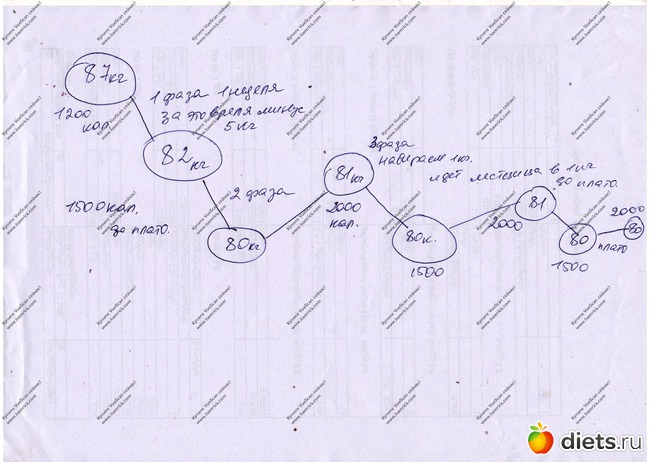 87кг
1200
кал.
1 фаза 1 неделя
за это время минус
5 кг
82 кг
1500 кал.
до плато.
2 фаза
80 кг
81 кг
2000
кал.
3 фаза
набираем 1 кг.
идет лестница в 1 кг
до плато.
80 к.
1500
2000
81
80
1500
плато
2000
80
Купите VueScan сейчас!
www.hamrick.com
diets.ru